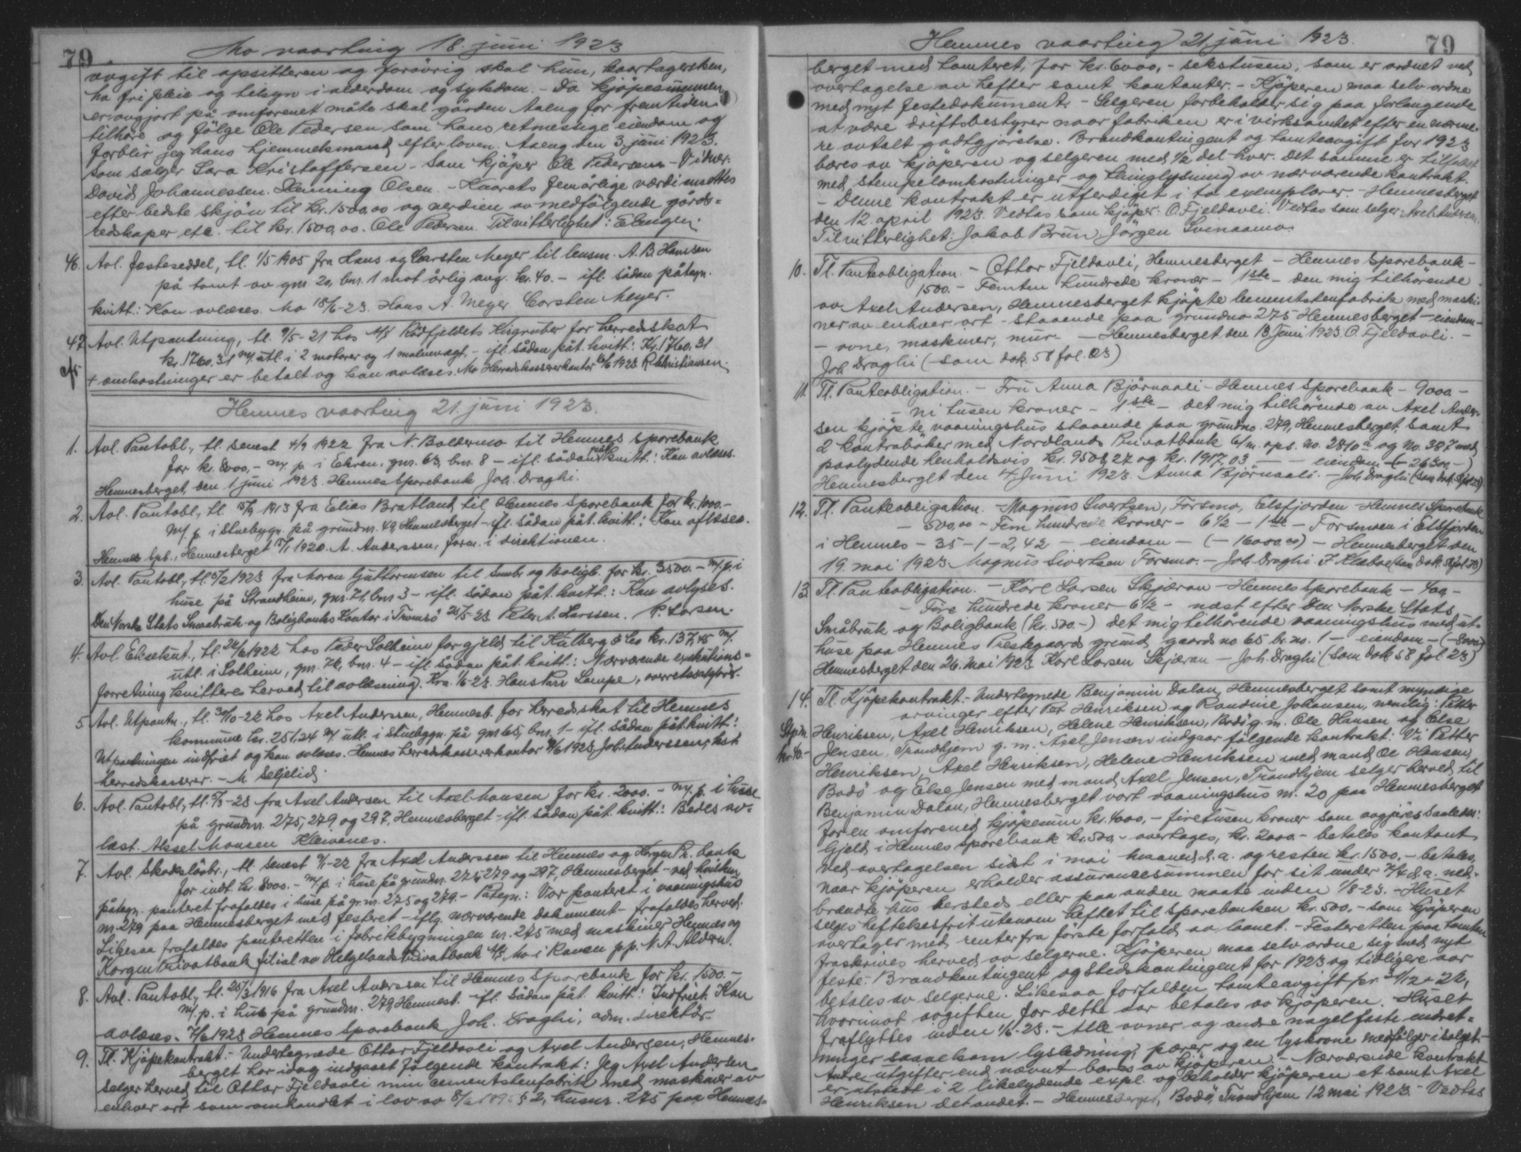 79 Mo vaarting 18 juni 1923
avgift til opsitteren og forövrig skal hun, kaartagersken,
ha fri pleie og tilsyn i alderdom og sykdom. - Da kjöpesummen
er avgjort på omforenet måte skal gården Aaeng for fremtiden
tilhöre og fölge Ole Pedersen som hans retmessige eiendom og
forblir jeg hans hjemmelsmand efter loven. Aaeng den 3 juni 1923.
Som selger Lara Kristoffersen - Som kjöper Ole Pedersen - Vidner:
David Johannessen. Henning Olsen. - Kaarets femårlige værdi ansettes
efter bedste skjön til kr. 1500,00 og verdien av medfölgende gårds-
redskaper etc. til kr. 1500,00. Ole Pedersen. Til vitterlighet: Elengen.
46. Avl. festeseddel, tl. 1/5 1905 fra Hans og Carsten Meyer til lensm. A. B. Hansen
på tomt av gnr. 20, bnr. 1 mot årlig avg. kr. 40 - ifl. sådan påtegn.
kvitt: Kan avlæses. Mo 18/6-23. Hans A. Meyer. Carsten Meyer.
47. Avl. Utpantning, tl. 9/5-21 hos A/S Rödfjeldets Kisgruber for herredsskat
kr. 1760.31 m/ utl. i 2 motorer og 1 malmvægt - ifl. sådan påt. kvitt: Kr. 1760,31
+ omkostninger er betalt og kan avlæses. Mo Herredskasserkontor 16/6 1923 R Christiansen.
Hemnes vaarting 21 juni 1923.
1. Avl. Pantobl., tl. senest 4/9 1922 fra N. Baldermo til Hemnes Sparebank
for kr. 8000,- m/ p. i Ekren, gnr. 63, bnr. 8 - ifl. sådan påt. kvitt: Kan avlæses.
Hemnesberget, den 1 juni 1923 Hemnes Sparebank Joh. Draghi.
2. Avl. Pantobl, tl. 1913 fra Elias Bratland til Hemnes Sparebank for kr. 1000.-
m/ p. i stuebygn. på grundnr. 49 Hemnesberget - ifl. sådan påt. kvitt: Kan aflæses.
Hemnes Spb., Hemnesberget 1920. A. Anderssen, form. i direktionen.
3. Avl. Pantobl, tl. 1923 fra Maren Guttormsen til Småb. og Boligb. for kr. 3500.- m/ p. i
huse på Strandheim, gnr. 71, bnr. 3 - ifl. sådan påt. kvitt: Kan avlyses.
Den Norske Stats Smaabruk og Boligbanks Kontor i Tromsö 26/5-23 Peter A. Larssen. P. Larsen.
4. Avl. Eksekut., tl. 24/6 1922 hos Peder Solheim for gjeld til Halberg & Co kr. 137.45 m/
utl. i Solheim, gnr. 72, bnr. 4 - ifl. sådan påt. kvitt: Nærværende exekutions-
forretning kvitteres herved til avlæsning. Kra. 1/6-23. Hans Parr Lampe, overretssagförer.
5. Avl. Utpantn., tl. 30/10-22 hos Axel Anderssen, Hemnesb. for herredsskat til Hemnes
kommune kr. 251.24 m/ utl. i stuebygn. på gnr. 65, bnr. 1 - ifl. sådan påt. kvitt:
Utpantningen indfriet og kan avlæses. Hemnes herredskasserkontor 1923 Joh. Anderssen, kst
herredskasserer. - M. Seljelid.
6. Avl. Pantobl, tl. 2/5-23 fra Axel Andersen til Axel Monsen for kr. 2000.- m/ p. i huse
på grundnr. 275, 279 og 297, Hemnesberget - ifl. sådan påt. kvitt: Bedes av-
læst. Aksel Monsen Kleivanes.
7. Avl. Skadeslösbr., tl. senest 22 fra Axel Anderssen til Hemnes og Korgen Pr. bank
for indt. kr. 8000.- m/ p. i huse på grundnr. 275, 279 og 297, Hemnesberget - ved hvilken
påtegn. panteret frafaldes i huse på gr. nr. 275 og 279 - Påtegn.: Vor panteret i vaaningshus
nr. 279 paa Hemnesberget med festeret - iflg. nærværende dokument - frafaldes herved.
Likesaa frafaldes panteretten i fabrikbygningen nr. 275 med maskiner Hemnes og
Korgen Privatbank filial av Helgelands Privatbank A/S. Mo i Ranen p.p. N. A. Aldern.
8. Avl. Pantobl., tl. 20/3 1916 fra Axel Anderssen til Hemnes Sparebank for kr. 1500.-
m/ p. i hus på grundnr. 279, Hemnesb. - ifl. sådan påt. kvitt: Indfriet. Kan
avlæses. 7/6 1923 Hemnes Sparebank Joh. Draghi, adm. direktör.
9. Tl. Kjöpekontrakt. - Undertegnede Ottar Fjeldavli og Axel Andersen, Hemnes-
berget har idag indgaaet fölgende kontrakt: Jeg Axel Andersen
selger herved til Ottar Fjeldavli min cementstenfabrik med maskiner av
enhver art som omhandlet i lov av § 2, husnr. 275 paa Hemnes-
Hemnes vaarting 21 juni 1923. 79
berget med tomteret, for kr. 6000,- sekstusen, som er ordnet ved
overtagelse av hefter samt kontanter. - Kjöperen maa selv ordne
med nyt festedokument - Selgeren forbeholder sig paa forlangende
at være driftsbestyrer naar fabriken er i virksomhet efter en nærme-
re avtalt godtgjörelse. Brandkontingent og tomteavgift for 1923
bæres av kjöperen og selgeren med ½ del hver. Det samme er tilfælde
med stempelomkostninger og tinglysning av nærværende kontrakt.
- Denne kontrakt er utferdiget i to exemplarer. - Hemnesberget
den 12 april 1923. Vedtas som kjöper: O. Fjeldavli. Vedtas som selger: Axel Andersen.
Til vitterlighet: Jakob Brun Jörgen Svenaamo.
10. Tl. Panteobligation. - Ottar Fjeldavli, Hemnesberget - Hennes Sparebank -
1500.- Femten hundrede kroner - 1ste - den mig tilhörende
av Axel Andersen, Hemnesberget kjöpte cementstenfabrik med maski-
ner av enhver art - staaende paa grundno 275 Hemnesberget - eiendom -
- ovne, maskiner, mure - Hemnesberget den 13 juni 1923. O. Fjeldavli. -
Joh. Draghi (- som dok. 58 fol. 23)
11. Tl. Panteobligation. - Fru Anna Björnaali - Hemnes Sparebank - 9000 -
- ni tusen kroner - 1.ste - det mig tilhörende av Axel Ander-
sen kjöpte vaaningshus staaende paa grundno. 279, Hemnesberget, samt
2 kontraböker med Nordlands Privatbank 6/m. ops. no. 2840 og No. 387 med
paalydende henholdsvis kr. 9508,27 og kr. 1917,03 - - eiendom - (- 26300 -)
Hemnesberget den 14 juni 1923. Anna Björnaali. - Joh. Draghi (som dok. 58 fol 23)
12. Tl. Panteobligation. - Magnus Sivertsen, Forsmo, Elsfjorden - Hemnes Sparebank
- 500,00 - Fem hundrede kroner - 6½ - 1ste - Forsmoen i Elsfjorden
i Hemnes - 35 - 1 - 2,42 - eiendom - (- 16000,00) - Hemnesberget den
19 mai 1923. Magnus Sivertsen Forsmo. - Joh. Draghi (som dok. 58 fol 23)
13. Tl. Panteobligation. - Karl Larsen Skjæran - Hemnes Sparebank - 400 -
- Fire hundrede kroner - 6½ - næst efter Den Norske Stats
Småbruk og Boligbank (kr. 500.-) det mig tilhörende vaaningshus med ut-
huse paa Hemnes Prestegaards grund, gaards no 65 br. no. 1 - eiendom - (- 8000)
Hemnesberget den 26 mai 1923 Karl Larsen Skjæran - Joh. Draghi (som dok 58 fol 23)
14. Tl. Kjöpekontrakt. - Undertegnede Benjamin Dalan, Hemnesberget samt myndige
arvinger efter Per Henriksen og Randine Johansen, nemlig: Petter
Stpm. Henriksen, Axel Henriksen, Helene Henriksen, Bodö g. m. Ole Hansen og Else
kr. 40.- Jensen, Trondhjem g. m. Axel Jensen indgaar fölgende kontrakt: Vi Petter
Henriksen, Axel Henriksen, Helene Henriksen med mand Ole Hansen,
Bodö og Else Jensen med mand Axel Jensen, Trondhjem selger herved til
Benjamin Dalan, Hemnesberget vort vaaningshus nr. 20 paa Hemnesberget
for en omforenet kjöpesum kr. 4000,- firetusen kroner som avgjöres saaledes:
Gjeld i Hemnes Sparebank kr. 500,- overtages, kr. 2000.- betales kontant
ved overtagelsen sidst i mai maaned d. a. og resten kr. 1500,- betales,
naar kjöperen erholder assurancesummen for sit under d. a. ned-
brændte hus hersteds eller paa anden maate inden 1/8-23. - Huset
selges heftelsesfrit utenom heftet til Sparebanken kr. 500.- som kjöperen
overtager med renter fra förste forfald av laanet. - Festeretten paa tomten
fraskrives herved av selgerne. Kjöperen maa selv ordne sig med nyt
feste. Brandkontingent og Stedskontingent for 1923 og tidligere aar
betales av selgerne. Likesaa forfalden tomteavgift pr. 31/12-22,
hvorimot avgiften for dette aar betales av kjöperen. - Huset
fraflyttes inden 1/6-23. - Alle ovner og andre nagelfaste indret-
ninger saasom lysledning, pærer og en lyskrone medfölger i salget.
Andre utgifter end nævnt bæres av kjöperen. - Nærværende kontrakt
er utstedt i 2 likelydende expl. og beholder kjöperen et samt Axel
Henriksen det andet. - Hemnesberget, Bodö, Trondhjem 12 mai 1923. - Vedtas